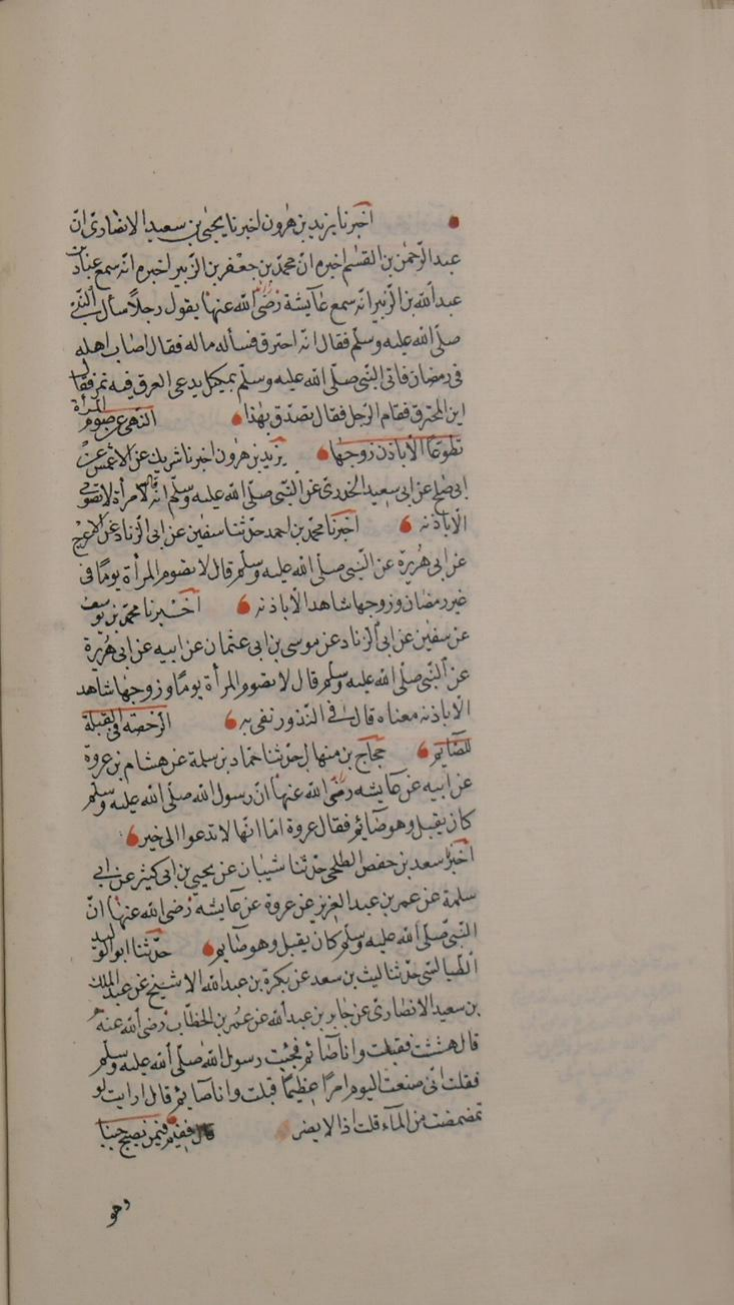 اخبرنا يزيد بن هٰرون اخبرنا يحيٰي بن سعيد الانصارىّ انّ
عبد الرّحمٰن بن القٰسم اخبره انّ محمّد بن جعفر بن الزّبير اخبره انّه سمع عبّاد بن
عبد الله بن الزّبير انّه سمع عآيشة رضى الله عنها يقول رجلاً سأل النّبى
صلّى الله عليه وسلّم فقال انّه احترق فسأله ماله فقال اصاب اهله
فى رمضان فاتى النّبى صلّى الله عليه وسلّم بمكتل يدعى العرق فيه تمر فقال
اين المحترق فقام الرّجل فقال تصدّق بهٰذا النّهى عن صوم المرأة
تطوّعًا الّا باذن زوجها يزيد بن هٰرون اخبرنا شريك عن الاعمش عن
ابى صٰلح عن ابى سعيد الخدرىّ عن النّبى صلّى الله عليه وسلّم انّه قال لامرأة لا تصومى
الّا باذنه اخبرنا محمّد بن احمد حدّثنا سفيٰن عن ابى الزّناد عن الاعرج
عن ابى هريرة عن النّبى صلّى الله عليه وسلّم قال لا تصوم المرأة يومًا فى
غير رمضان وزوجها شاهد الّا باذنه اخبرنا محمّد بن يوسف
عن سفيٰن عن ابى الزّناد عن موسى بن ابى عثمان عن ابيه عن ابى هريرة
عن النّبى صلّى الله عليه وسلّم قال لا تصوم المرأة يومًا وزوجها شاهد
الّا باذنه معناه قال فى النّذور تفى به الرّخصة فى القبلة
للصّآيم حجّاج بن منهال حدّثنا حمّاد بن سلمة عن هشام بن عروة
عن ابيه عن عآيشه رضى الله عنها انّ رسول الله صلّى الله عليه وسلّم
كان يقبل وهو صآئم فقال عروة امّا انّها لا تدعوا الى خير
اخبرنا سعد بن حفص الطلحى حدّثنا شيبان عن يحيى بن ابى كثير عن ابى
سلمة عن عمر بن عبد العزيز عن عروة عن عآيشه رضى الله عنها انّ
النّبى صلّى الله عليه وسلّم كان يقبل وهو صآيم حدّثنا ابو الوليد
الطيالسى حدّثنا ليث بن سعد عن بكرة بن عبد الله الاشيخ عن عبد الملك
بن سعيد الانصارىّ عن جابر بن عبد الله عن عمر بن الخطّاب رضى الله عنه
قال هششت فقبلت وانا صآئم فجئت رسول الله صلّى الله عليه وسلّم
فقلت انّى صنعت اليوم امرًا عظيمًا قبلت وانا صآيم قال ارايت لو
تمضمضت من المآء قلت اذا لا يضر فيمن يصبح جنبا
وهو